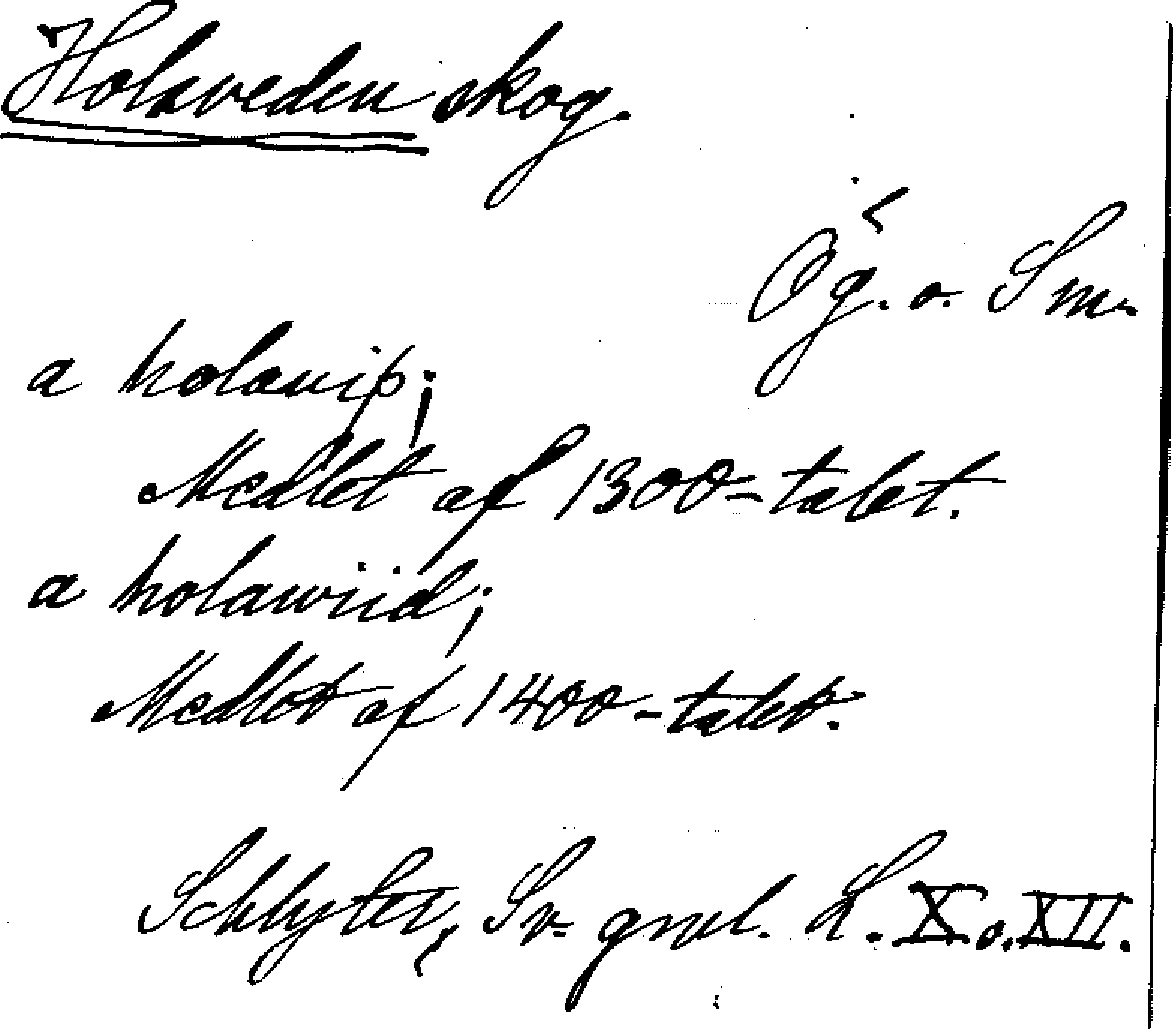 Holaveden skog.
Ög. o. Sm.
a holauiþ;
Medlet af 1300-talet.
a holawiid;
Medlet af 1400-talet.
Schlyter, Sv. gml. L. X o. XII.